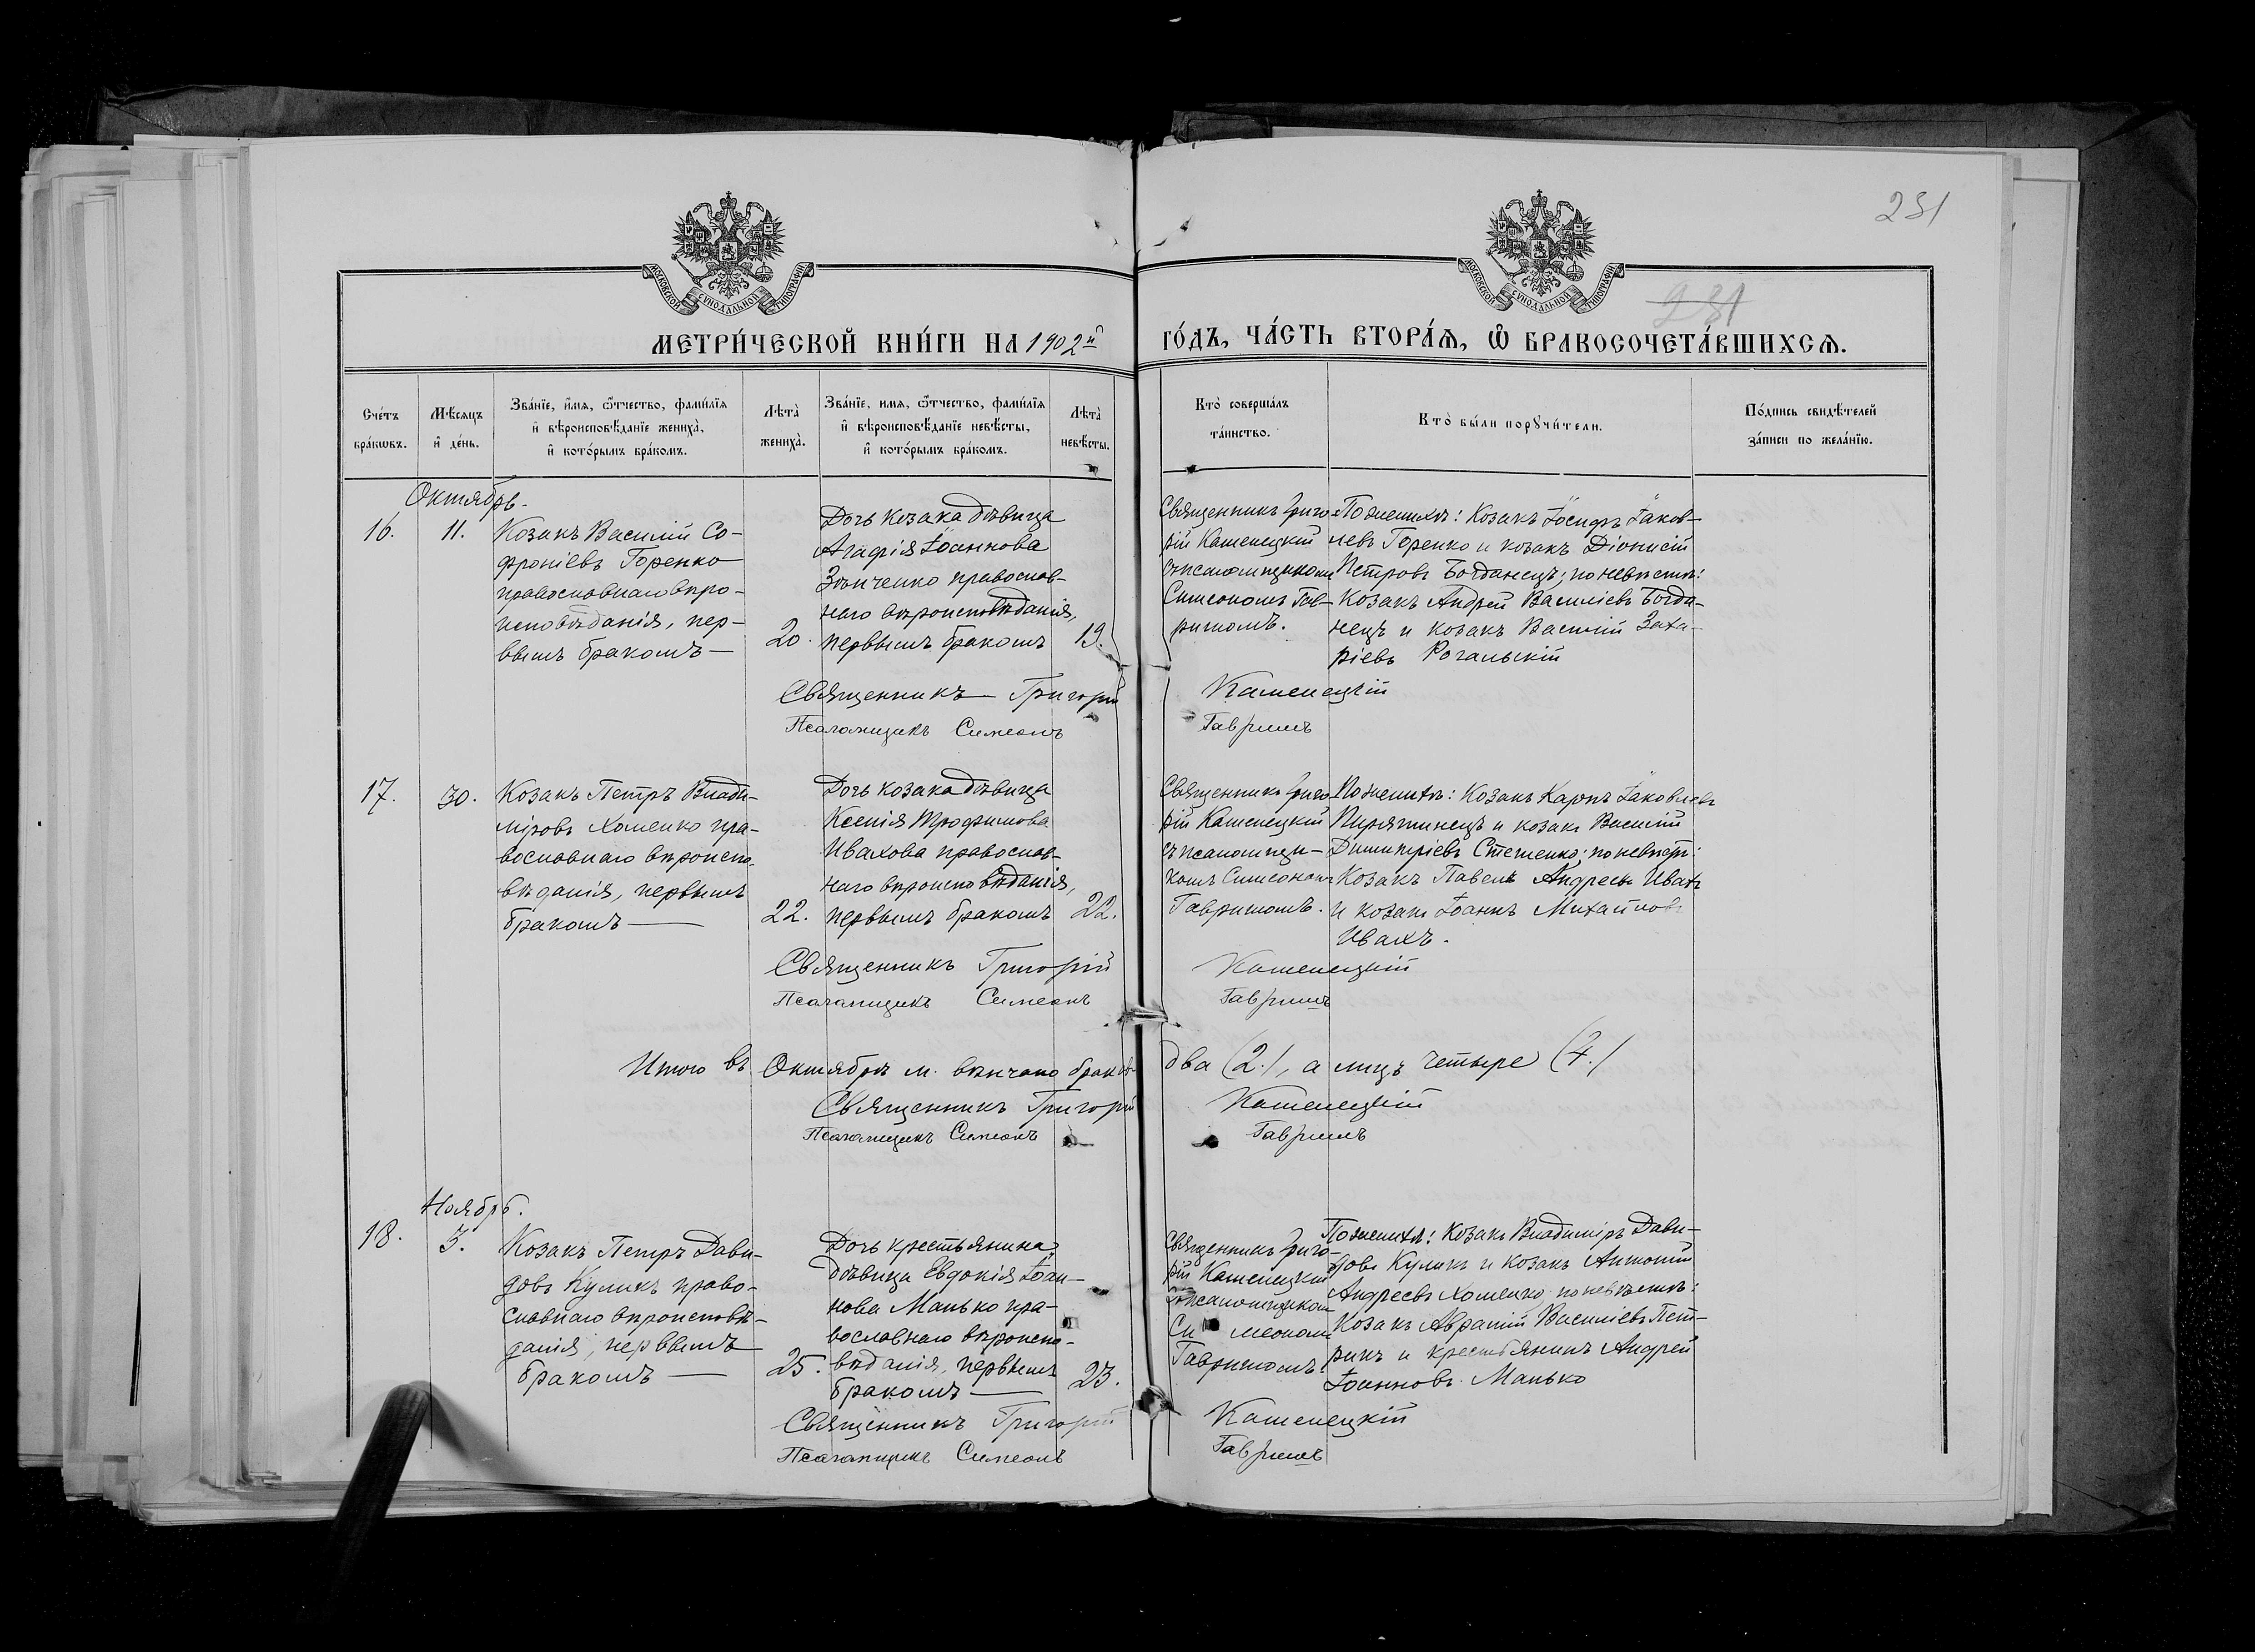 231
231
МОСКОВСКОЙ СѴНОДАЛЬНОЙ ТИПОГРАФІИ
МОСКОВСКОЙ СѴНОДАЛЬНОЙ ТИПОГРАФІИ
МЕТРИ́ЧЕСКОЙ КНИ́ГИ НА 1902й
ГО́ДЪ, ЧА́СТЬ ВТОРА́Ѧ, Ѽ БРАКОСОЧЕТА́ВШИХСѦ.
Сче́тъ
бра́кѡвъ.
Мѣ́сѧцъ
и҆ де́нь.
Зва́нїе, и҆́мѧ, ѻ҆́тчество, фами́лїѧ
и҆ вѣроисповѣ́данїе жениха̀,
и҆ кото́рымъ бра́комъ.
Лѣта̀
жениха̀.
Зва́нїе, имѧ, ѻ҆́тчество, фами́лїѧ
и҆ вѣроисповѣ́данїе невѣ́сты,
и҆ кото́рымъ бра́комъ.
Лѣта̀
невѣ́сты.
Кто̀ соверша́лъ
та́инство.
Кто̀ бы́ли порꙋчи́тели.
По́дпись свидѣ́телей
за́писи по жела́нїю.
Октябрь.
16.
11.
Козакъ Василій Со-
фроніевъ Горенко
православнаго вѣро-
исповѣданія, пер-
вымъ бракомъ —
20.
Дочь козака дѣвица
Агафія Іоаннова
Зѣнченко православ-
наго вѣроисповѣданія,
первымъ бракомъ
19.
Священникъ Григо-
рій Каменецкій
съ псаломщикомъ
Симеономъ Гав-
ришомъ.
По женихѣ: Козакъ Іосифъ Іаков-
левъ Горенко и козакъ Діонисій
Петровъ Богданецъ; по невѣстѣ:
Козакъ Андрей Василіевъ Богда-
нецъ и козакъ Василій Заха-
ріевъ Рогальскій
Священникъ — Григорій Каменецкій
Псаломщикъ Симеонъ Гавришъ
17.
30.
Козакъ Петръ Влади-
міровъ Хоменко пра-
вославнаго вѣроиспо-
вѣданія, первымъ
бракомъ —
22.
Дочь козака дѣвица
Ксенія Трофимова
Ивахова православ-
наго вѣроисповѣданія,
первымъ бракомъ
22.
Священникъ Григо-
рій Каменецкій
съ псаломщи-
комъ Симеономъ
Гавришомъ.
По женихѣ: Козакъ Карпъ Іаковлевъ
Пирятинецъ и козакъ Василій
Димитріевъ Стеценко; по невѣстѣ:
Козакъ Павелъ Андреевъ Ивахъ
и козакъ Іоаннъ Михайловъ
Ивахъ.
Священникъ Григорій Каменецкій
Псаломщикъ Симеонъ Гавришъ
Итого въ Октябрѣ м. вѣнчано браковъ два (2.), а лицъ четыре (4.)
Священникъ Григорій Каменецкій
Псаломщикъ Симеонъ Гавришъ
Ноябрь.
18.
3.
Козакъ Петръ Дави-
довъ Куликъ право-
славнаго вѣроисповѣ-
данія, первымъ
бракомъ —
25.
Дочь крестьянина,
дѣвица Евдокія Іоан-
нова Манько пра-
вославнаго вѣроиспо-
вѣданія, первымъ
бракомъ —
23.
Священникъ Григо-
рій Каменецкій
съ псаломщикомъ
Симеономъ
Гавришомъ.
По женихѣ: Козакъ Владиміръ Дави-
довъ Куликъ и козакъ Антоній
Андреевъ Хоменко; по невѣстѣ:
Козакъ Аврамій Василіевъ Пет-
рикъ и крестьянинъ Андрей
Іоанновъ Манько
Священникъ Григорій Каменецкій
Псаломщикъ Симеонъ Гавришъ